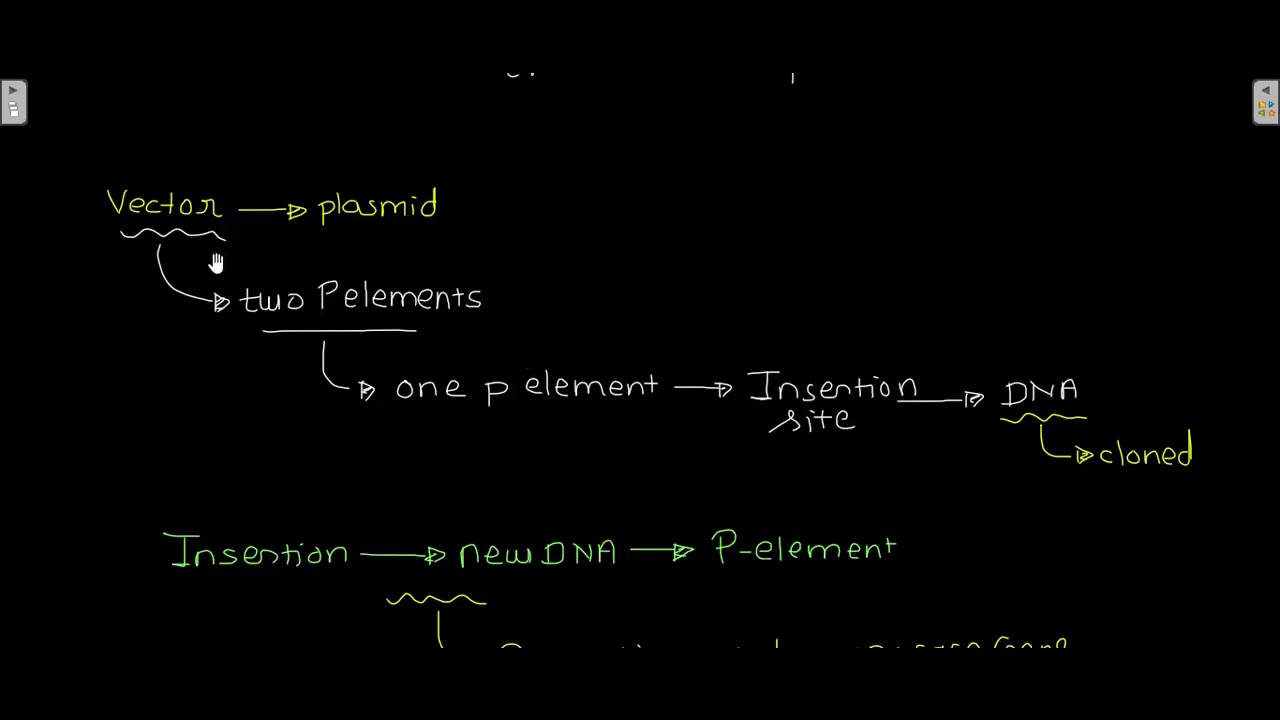 Vector → plasmid
two Pelements
one p element → Insertion → DNA
site
cloned
Insertion → new DNA → P-element